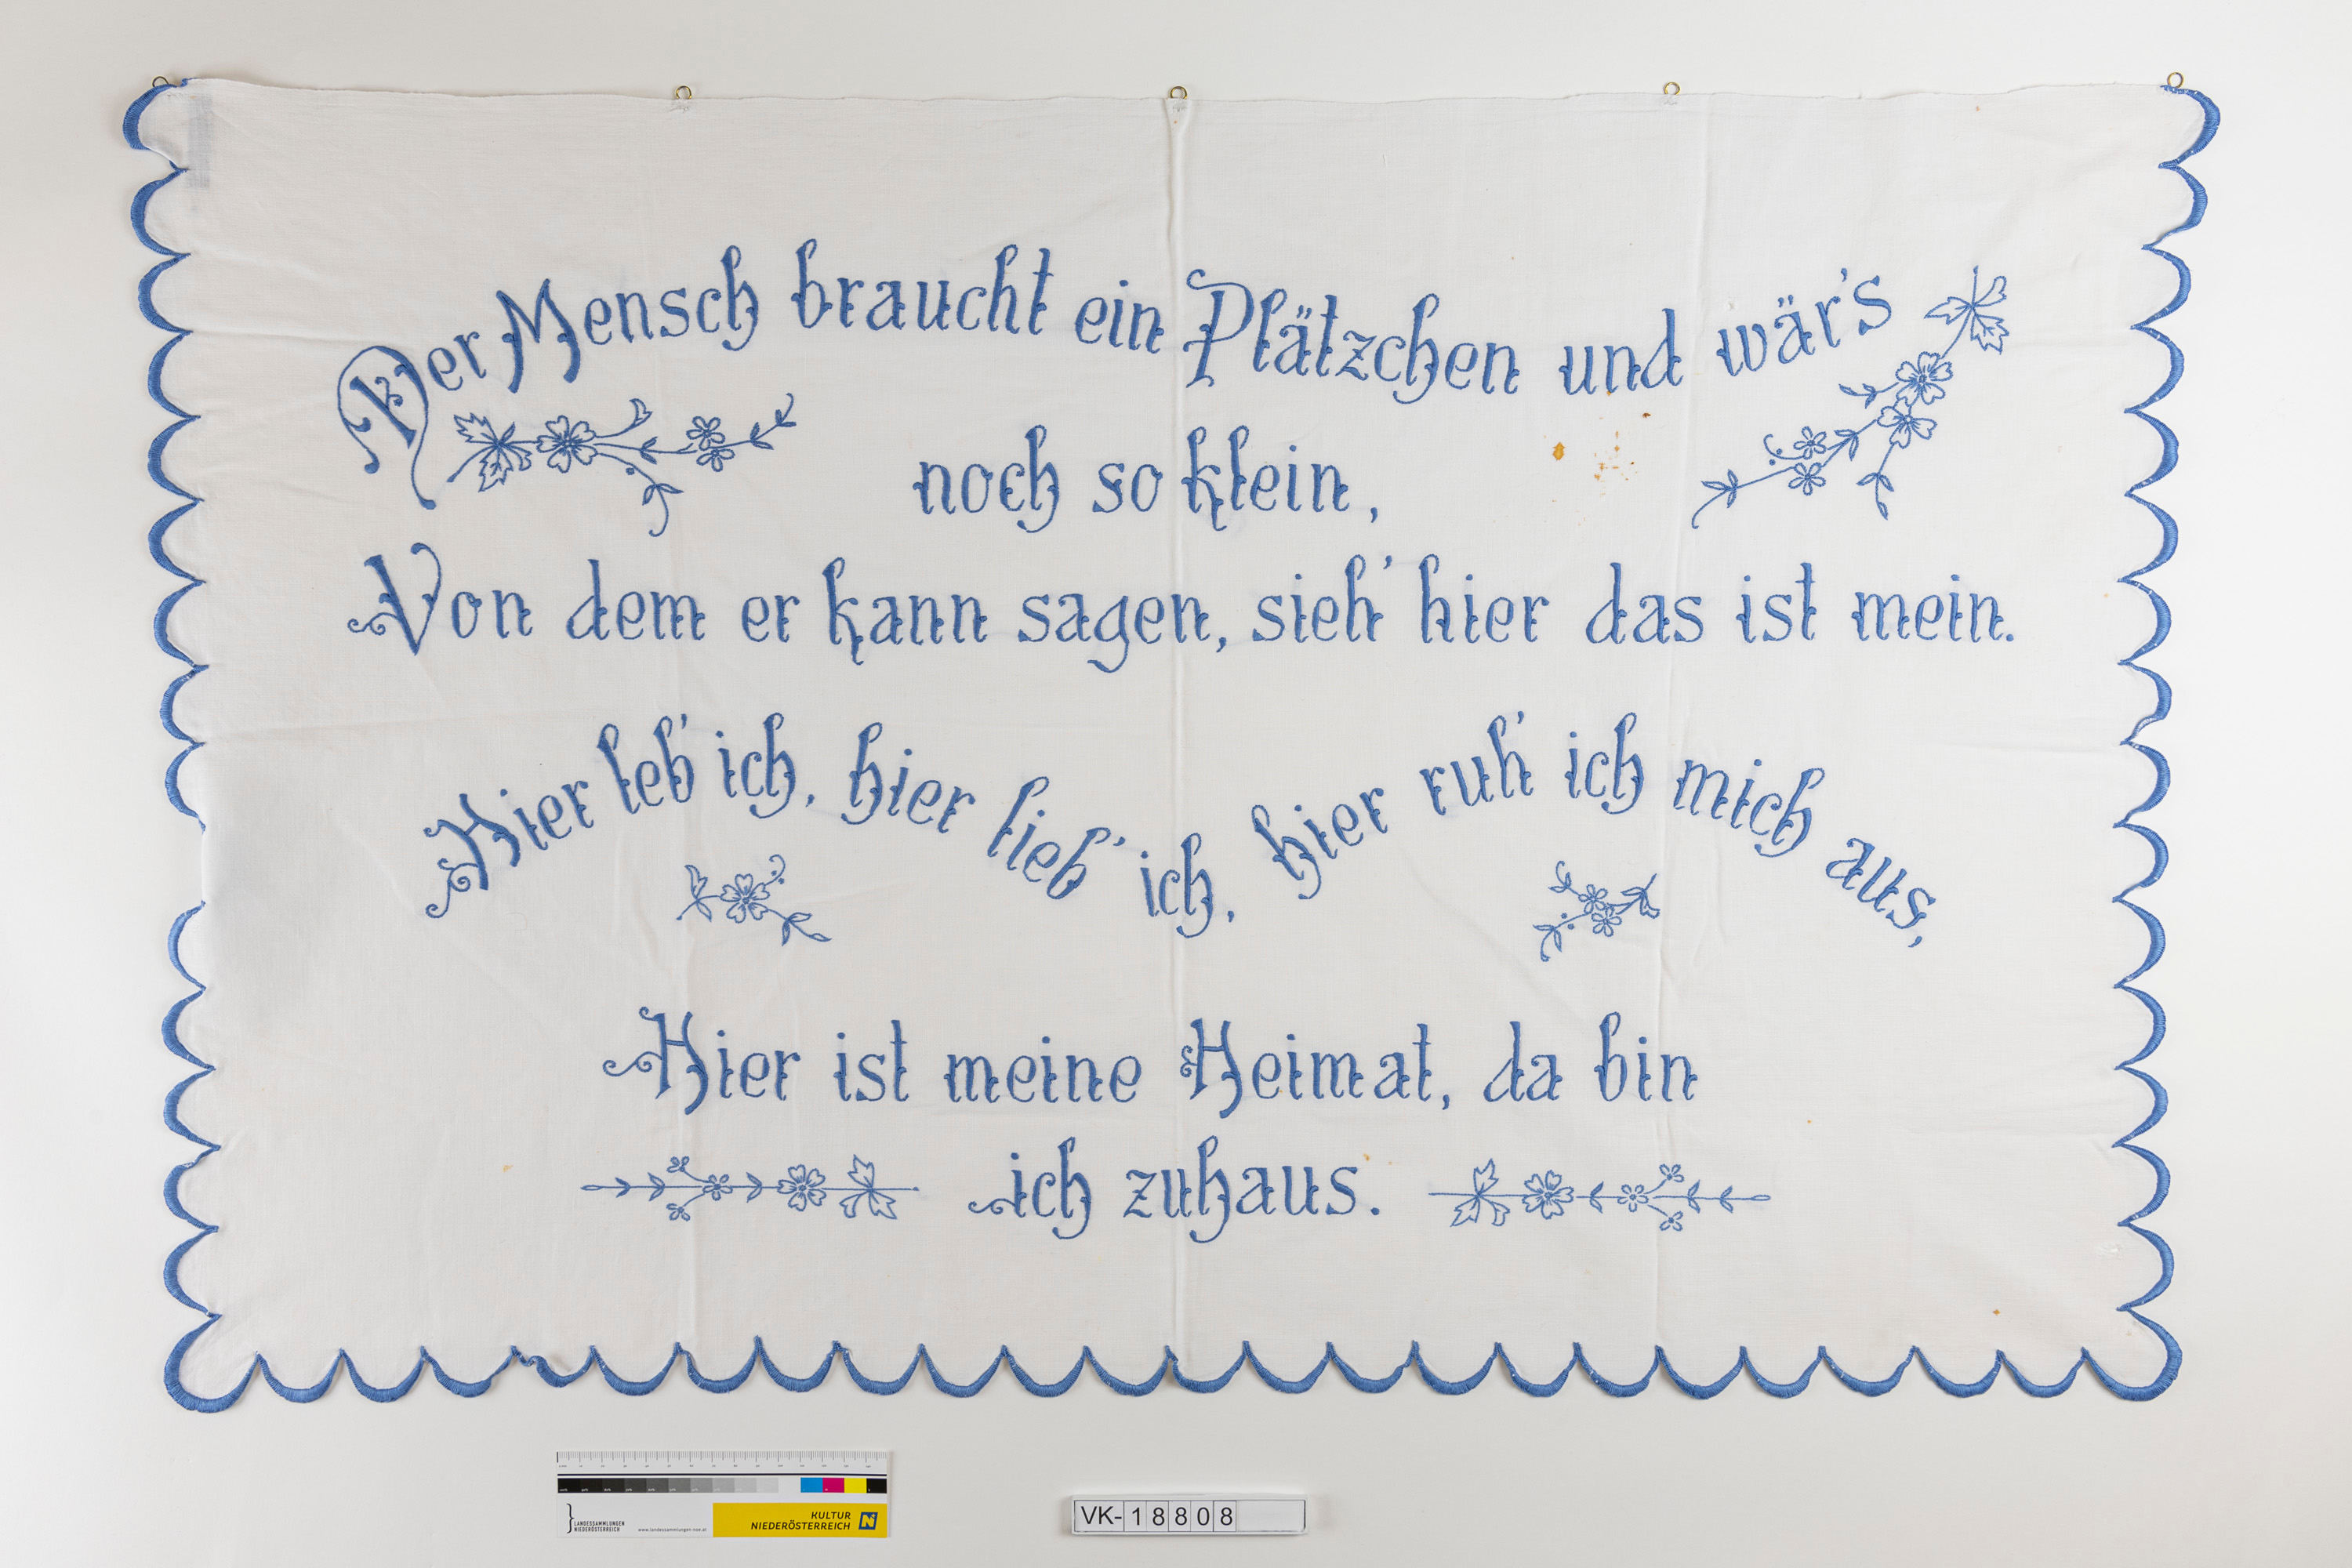 Der Mensch braucht ein Plätzchen und wär's
noch so klein,
Von dem er kann sagen, sieh' hier das ist mein.
Hier leb' ich, hier lieb' ich, hier ruh' ich mich aus,
Hier ist meine Heimat, da bin
ich zuhaus.
LANDESSAMMLUNGEN
NIEDERÖSTERREICH
www.landessammlungen-noe.at
KULTUR
NIEDERÖSTERREICH
VK-18808